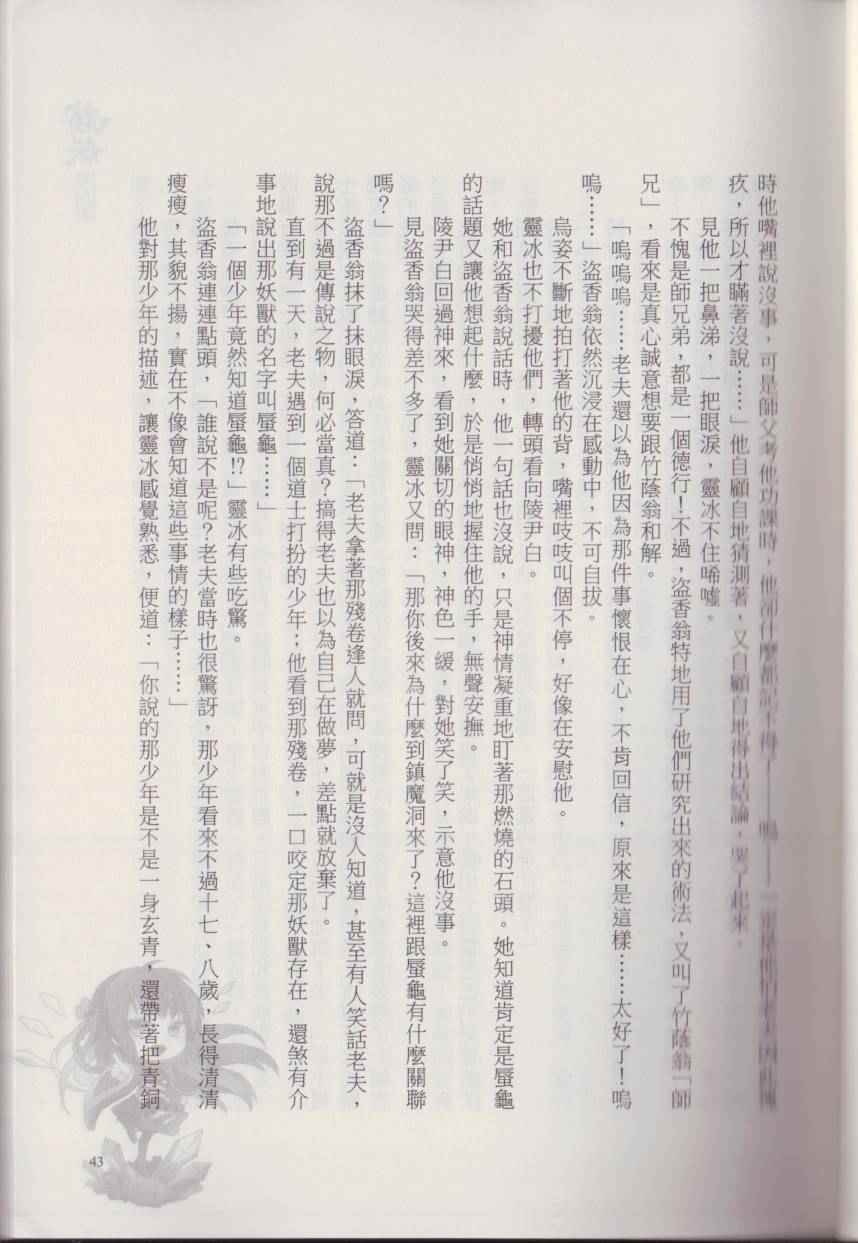 時他嘴裡說沒事，可是師父考他功課時，他卻什麼都記不得
疚，所以才瞞著沒說……」他自顧自地猜測著，又自顧自地得出結論，哭了起來。
見他一把鼻涕，一把眼淚，靈冰不住唏噓。
不愧是師兄弟，都是一個德行！不過，盜香翁特地用了他們研究出來的術法，又叫了竹蔭翁「師
兄」，看來是真心誠意想要跟竹蔭翁和解。
「嗚嗚嗚……老夫還以為他因為那件事懷恨在心，不肯回信，原來是這樣……太好了！嗚
嗚……」盜香翁依然沉浸在感動中，不可自拔。
烏姿不斷地拍打著他的背，嘴裡吱吱叫個不停，好像在安慰他。
靈冰也不打擾他們，轉頭看向陵尹白。
她和盜香翁說話時，他一句話也沒說，只是神情凝重地盯著那燃燒的石頭。她知道肯定是蜃龜
的話題又讓他想起什麼，於是悄悄地握住他的手，無聲安撫。
陵尹白回過神來，看到她關切的眼神，神色一緩，對她笑了笑，示意他沒事。
見盜香翁哭得差不多了，靈冰又問：「那你後來為什麼到鎮魔洞來了？這裡跟蜃龜有什麼關聯
嗎？」
盜香翁抹了抹眼淚，答道：「老夫拿著那殘卷逢人就問，可就是沒人知道，甚至有人笑話老夫，
說那不過是傳說之物，何必當真？搞得老夫也以為自己在做夢，差點就放棄了。
直到有一天，老夫遇到一個道士打扮的少年；他看到那殘卷，一口咬定那妖獸存在，還煞有介
事地說出那妖獸的名字叫蜃龜……」
「一個少年竟然知道蜃龜!?」靈冰有些吃驚。
盜香翁連連點頭，「誰說不是呢？老夫當時也很驚訝，那少年看來不過十七、八歲，長得清清
瘦瘦，其貌不揚，實在不像會知道這些事情的樣子……」
他對那少年的描述，讓靈冰感覺熟悉，便道：「你說的那少年是不是一身玄青，還帶著把青銅
43